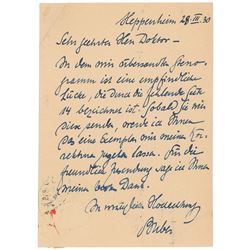 Heppenheim 28. III. 30
Sehr geehrter Herr Doktor –
In dem mir übersandten Stenogramm
ist eine empfindliche
Lücke, die durch die fehlende Seite
14 bezeichnet ist. Sobald Sie mir
diese senden, werde ich Ihnen
das Exemplar mit meinen Korrekturen
zugehen lassen. Für die
freundliche sage ich Ihnen
meinen besten Dank.
In vorzüglicher Hochachtung
Buber